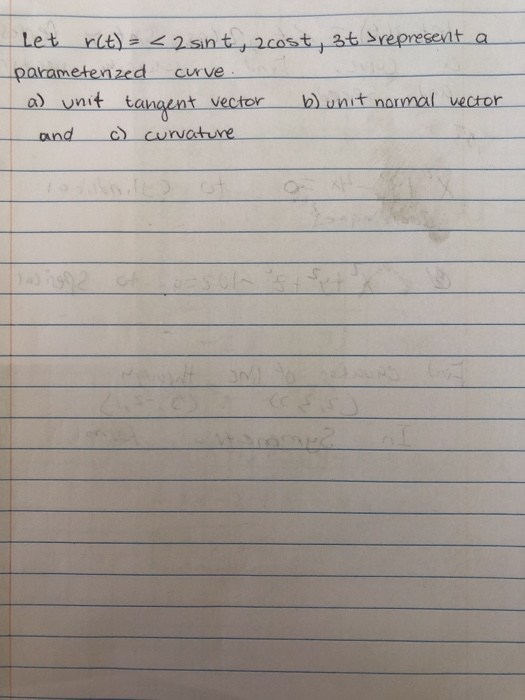 Let r(t) = < 2 sin t, 2cost, 3t > represent a
parameterized curve.
a) unit tangent vector b) unit normal vector
and c) curvature